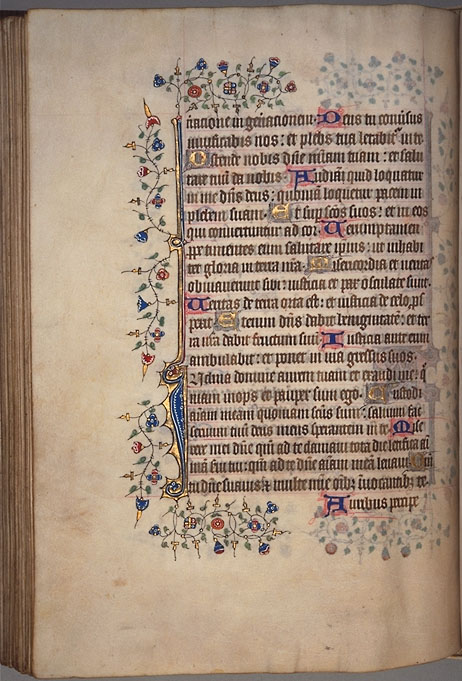 racione in generacionem. Deus tu conũsus
uiuificabis nos: et plebs tua letabit̃ in te.
Ostende nobis dñe miãm tuam: et salu
tare tuũ da nobis. Audiam quid loquatur
in me dñs deus: quoniã loquetur pacem in
plebem suam. Et sup scõs suos: et in eos
qui conuertuntur ad cor. Uerumptamen
ppe timentes eum salutare ipsius: ut inhabi
tet gloria in terra nrã. Misericordia et ueritas
obuiauerunt sibi: iusticia et pax osculate sunt.
Ueritas de terra orta est: et iusticia de celo ps
pexit. Etenim dñs dabit benignitatẽ: et ter
ra nrã dabit fructum suũ. Iusticia ante eum
ambulabit: et ponet in uia gressus suos.
Inclina domine aurem tuam et exaudi me: q̃
niam inops et pauper sum ego. Custodi
aĩam meam quoniam scũs sum: saluum fac
seruum tuũ deus meus sperantem in te. Mise
rere mei dñe qm̃ ad te clamaui tota die letifica aĩ
mã serui tui: qm̃ ad te dñe aĩam meã leuaui. Qm̃
tu dñe suauis & multe mie oĩbz ĩuocantibz te.
Auribus percipe